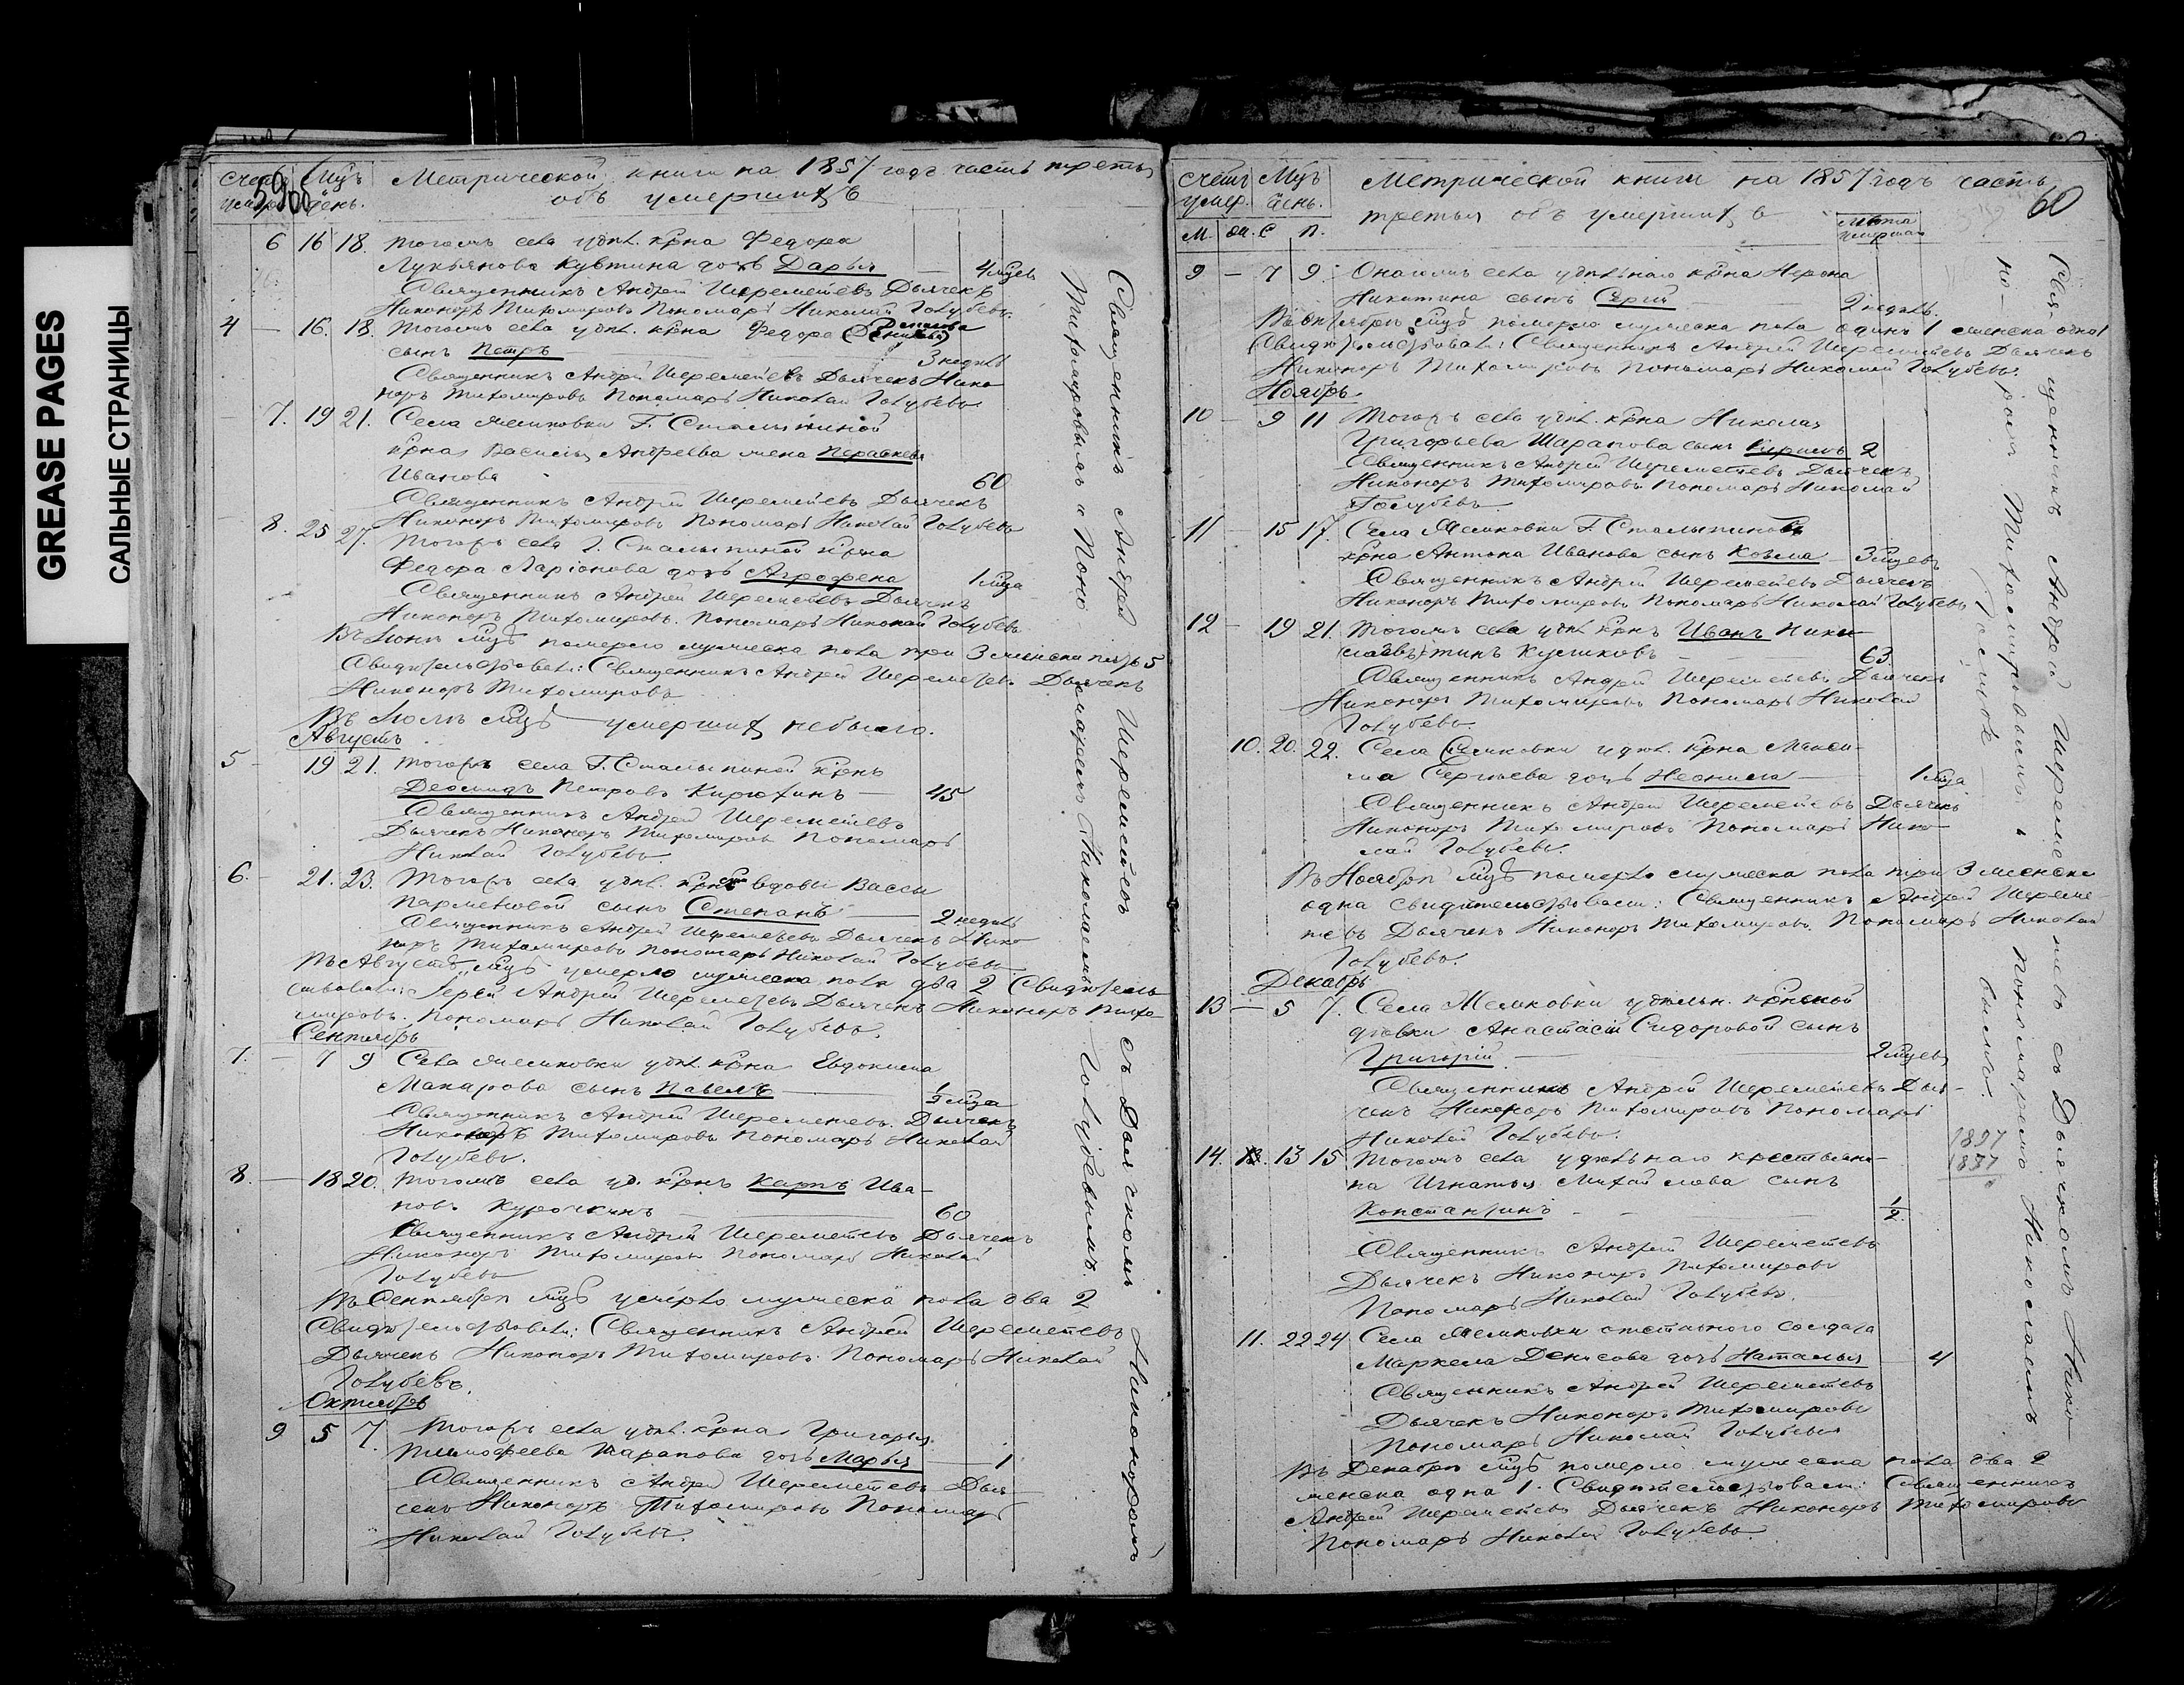 GREASE PAGES
САЛЬНЫЕ СТРАНИЦЫ
59об
Счетъ Мцъ
умер. день.
Метрической книги на 1857 годъ часть треть
объ умершихъ
6 16 18. Тогожъ села удѣл. крна Федора
Лукьянова Кувтина дочь Дарья — 4 мцев
Священникъ Андрей Шереметевъ Дьячекъ
Никоноръ Тихомировъ Пономарь Николай Голубевъ.
4 — 16. 18. Тогожъ села удѣл. крна Федора Денисова
сынъ Петръ — 3 недѣль
Священникъ Андрей Шереметевъ Дьячекъ Нико
норъ Тихомировъ Пономарь Николай Голубевъ
7. 19 21. Села Мешковки Г. Столыпиной
крна Василья Андреева жена Парасковья
Иванова 60
Священникъ Андрей Шереметевъ Дьячекъ
Никоноръ Тихомировъ Пономарь Николай Голубевъ
8. 25 27. Тогожъ села Г. Столыпиной крна
Федора Ларіонова дочь Агрофена 1 мца
Священникъ Андрей Шереметевъ Дьячекъ
Никоноръ Тихомировъ. Пономарь Николай Голубевъ
Въ Іюнѣ мцѣ померло мужеска пола три 3 женска пять 5
Свидѣтельствовали: Священникъ Андрей Шереметевъ Дьячекъ
Никоноръ Тихомировъ
Въ Іюлѣ мцѣ — умершихъ небыло.
Августъ
5 — 19 21. Тогожъ села Г. Столыпиной крнъ
Деомидъ Петровъ Кирюхинъ — 45
Священникъ Андрей Шереметевъ
Дьячекъ Никоноръ Тихомировъ Пономарь
Николай Голубевъ
6. — 21. 23. Тогожъ села удѣл. крнъ вдовы Вассы
Парменовой сынъ Степанъ — 2 недѣль
Священникъ Андрей Шереметевъ Дьячекъ Нико
норъ Тихомировъ Пономарь Николай Голубевъ
Въ Августѣ мцѣ умерло мужеска пола два 2 Свидѣтель
ствовали: Іерей Андрей Шереметевъ Дьячекъ Никоноръ Тихо
мировъ. Пономарь Николай Голубевъ.
Сентябрь
7. — 7 9 Села Мешковки удѣл. крна Евдокима
Макарова сынъ Павелъ — ½ мца
Священникъ Андрей Шереметевъ. Дьячекъ
Никоноръ Тихомировъ Пономарь Николай
Голубевъ.
8. — 18 20. Тогожъ села уд. крнъ Карпъ Ива—
новъ Курочкинъ — 60
Священникъ Андрей Шереметевъ Дьячекъ
Никоноръ Тихомировъ Пономарь Николай
Голубевъ
Въ Сентябрѣ мцѣ умерло мужеска пола два 2
Свидѣтельствовали: Священникъ Андрей Шереметевъ
Дьячекъ Никоноръ Тихомировъ. Пономарь Николай
Голубевъ.
Октябрь
9 5 7. Тогожъ села удѣл. крна Григорья
Тимофеева Шарапова дочь Марья — 1
Священникъ Андрей Шереметевъ Дья
чекъ Никоноръ Тихомировъ Пономарь
Николай Голубевъ.
Священникъ Андрей Шереметевъ съ Дьячкомъ Никоноромъ
Тихомировымъ и Пономаремъ Николаемъ Голубевымъ.
60
Счетъ Мцъ
умер. день.
Метрической книги на 1857 годъ часть
третья объ умершихъ
Лѣта
умершаго
М. Ж. С П.
9 — 7 9. Онагожъ села удѣльнаго крна
Никитина сынъ Сергій — 2 недѣль.
Въ Октябрѣ мцѣ померло мужеска пола одинъ 1 женска одна 1
Свидѣтельствовали: Священникъ Андрей Шереметевъ Дьячекъ
Никоноръ Тихомировъ Пономарь Николай Голубевъ.
Ноябрь.
10 — 9 11 Тогожъ села удѣл. крна Николая
Григорьева Шарапова сынъ 2
Священникъ Андрей Шереметевъ Дьячекъ
Никоноръ Тихомировъ Пономарь Николай
Голубевъ.
11 — 15 17. Села Мешковки Г. Столыпиной
крна Антона Иванова сынъ Козьма — 3 мцевъ
Священникъ Андрей Шереметевъ Дьячекъ
Никоноръ Тихомировъ Пономарь Николай Голубевъ
12 — 19 21. Тогожъ села удѣл крнъ Иванъ
63.
Священникъ Андрей Шереметевъ Дьячекъ
Никоноръ Тихомировъ Пономарь Николай
Голубевъ
10. 20. 22. Села Мешковки удѣл. крна Макси—
ма Сергѣева дочь Неонила — 1 мца
Священникъ Андрей Шереметевъ Дьячекъ
Никоноръ Тихомировъ Пономарь Нико—
лай Голубевъ.
Въ Ноябрѣ мцѣ померло мужеска пола три 3 женска
одна свидѣтельствовали: Священникъ Андрей Шереме
тевъ Дьячекъ Никоноръ Тихомировъ. Пономарь Николай
Голубевъ.
Декабрь
13 — 5 7. Села Мешковки удѣльн. крнской
дѣвки Анастасіи Сидоровой сынъ
Григорій — 2 мцевъ
Священникъ Андрей Шереметевъ Дья—
чекъ Никоноръ Тихомировъ Пономарь
Николай Голубевъ.
14. 13 15 Тогожъ села удѣльнаго крестьяни—
на Игнатья Михайлова сынъ
Константинъ — ½
Священникъ Андрей Шереметевъ
Дьячекъ Никоноръ Тихомировъ
Пономарь Николай Голубевъ.
11. 22 24 Села Мешковки солдата
Маркела Денисова дочь Наталья 4
Священникъ Андрей Шереметевъ
Дьячекъ Никоноръ Тихомировъ
Пономарь Николай Голубевъ
Въ Декабрѣ мцѣ померло мужеска пола два 2
женска одна 1. Свидѣтельствовали: Священникъ
Андрей Шереметевъ Дьячекъ Никоноръ Тихомировъ
Пономарь Николай Голубевъ
Священникъ Андрей Шереметевъ съ Дьячкомъ Нико—
норомъ Тихомировымъ и Пономаремъ Николаемъ